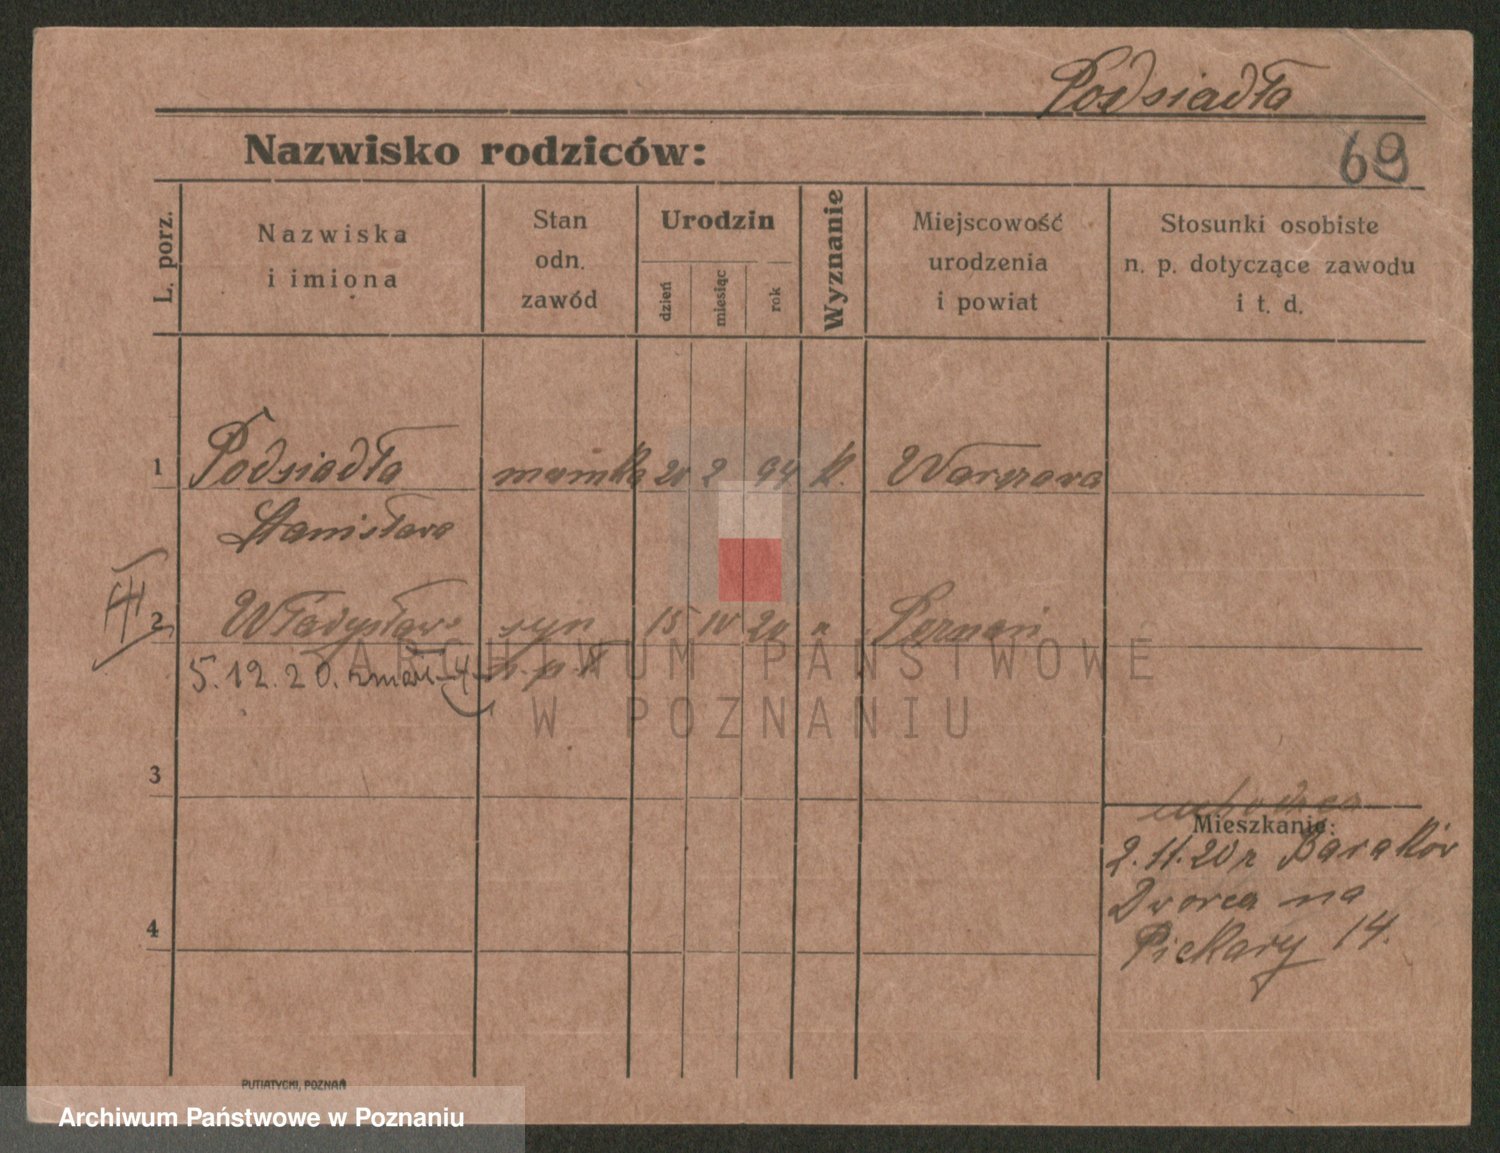 Podsiadła
69
Nazwisko rodziców:
L. porz.
Nazwiska
i imiona
Stan
odn.
zawód
Urodzin
dzień
miesiąc
rok
Wyznanie
Miejscowość
urodzenia
i powiat
Stosunki osobiste
n. p. dotyczące zawodu
i t. d.
1 Podsiadła mamka 20 2 94 k. Warszawa
Stanisława
III
2 Władysław syn 15 10 20 " Poznań
5.12.20. zmarł
3
Mieszkanie:
2.11.20 z Baraków
Dworca na
4
Piekary 14.
PUTIATYCKI, POZNAŃ
ARCHIWUM PAŃSTWOWE
W POZNANIU
Archiwum Państwowe w Poznaniu